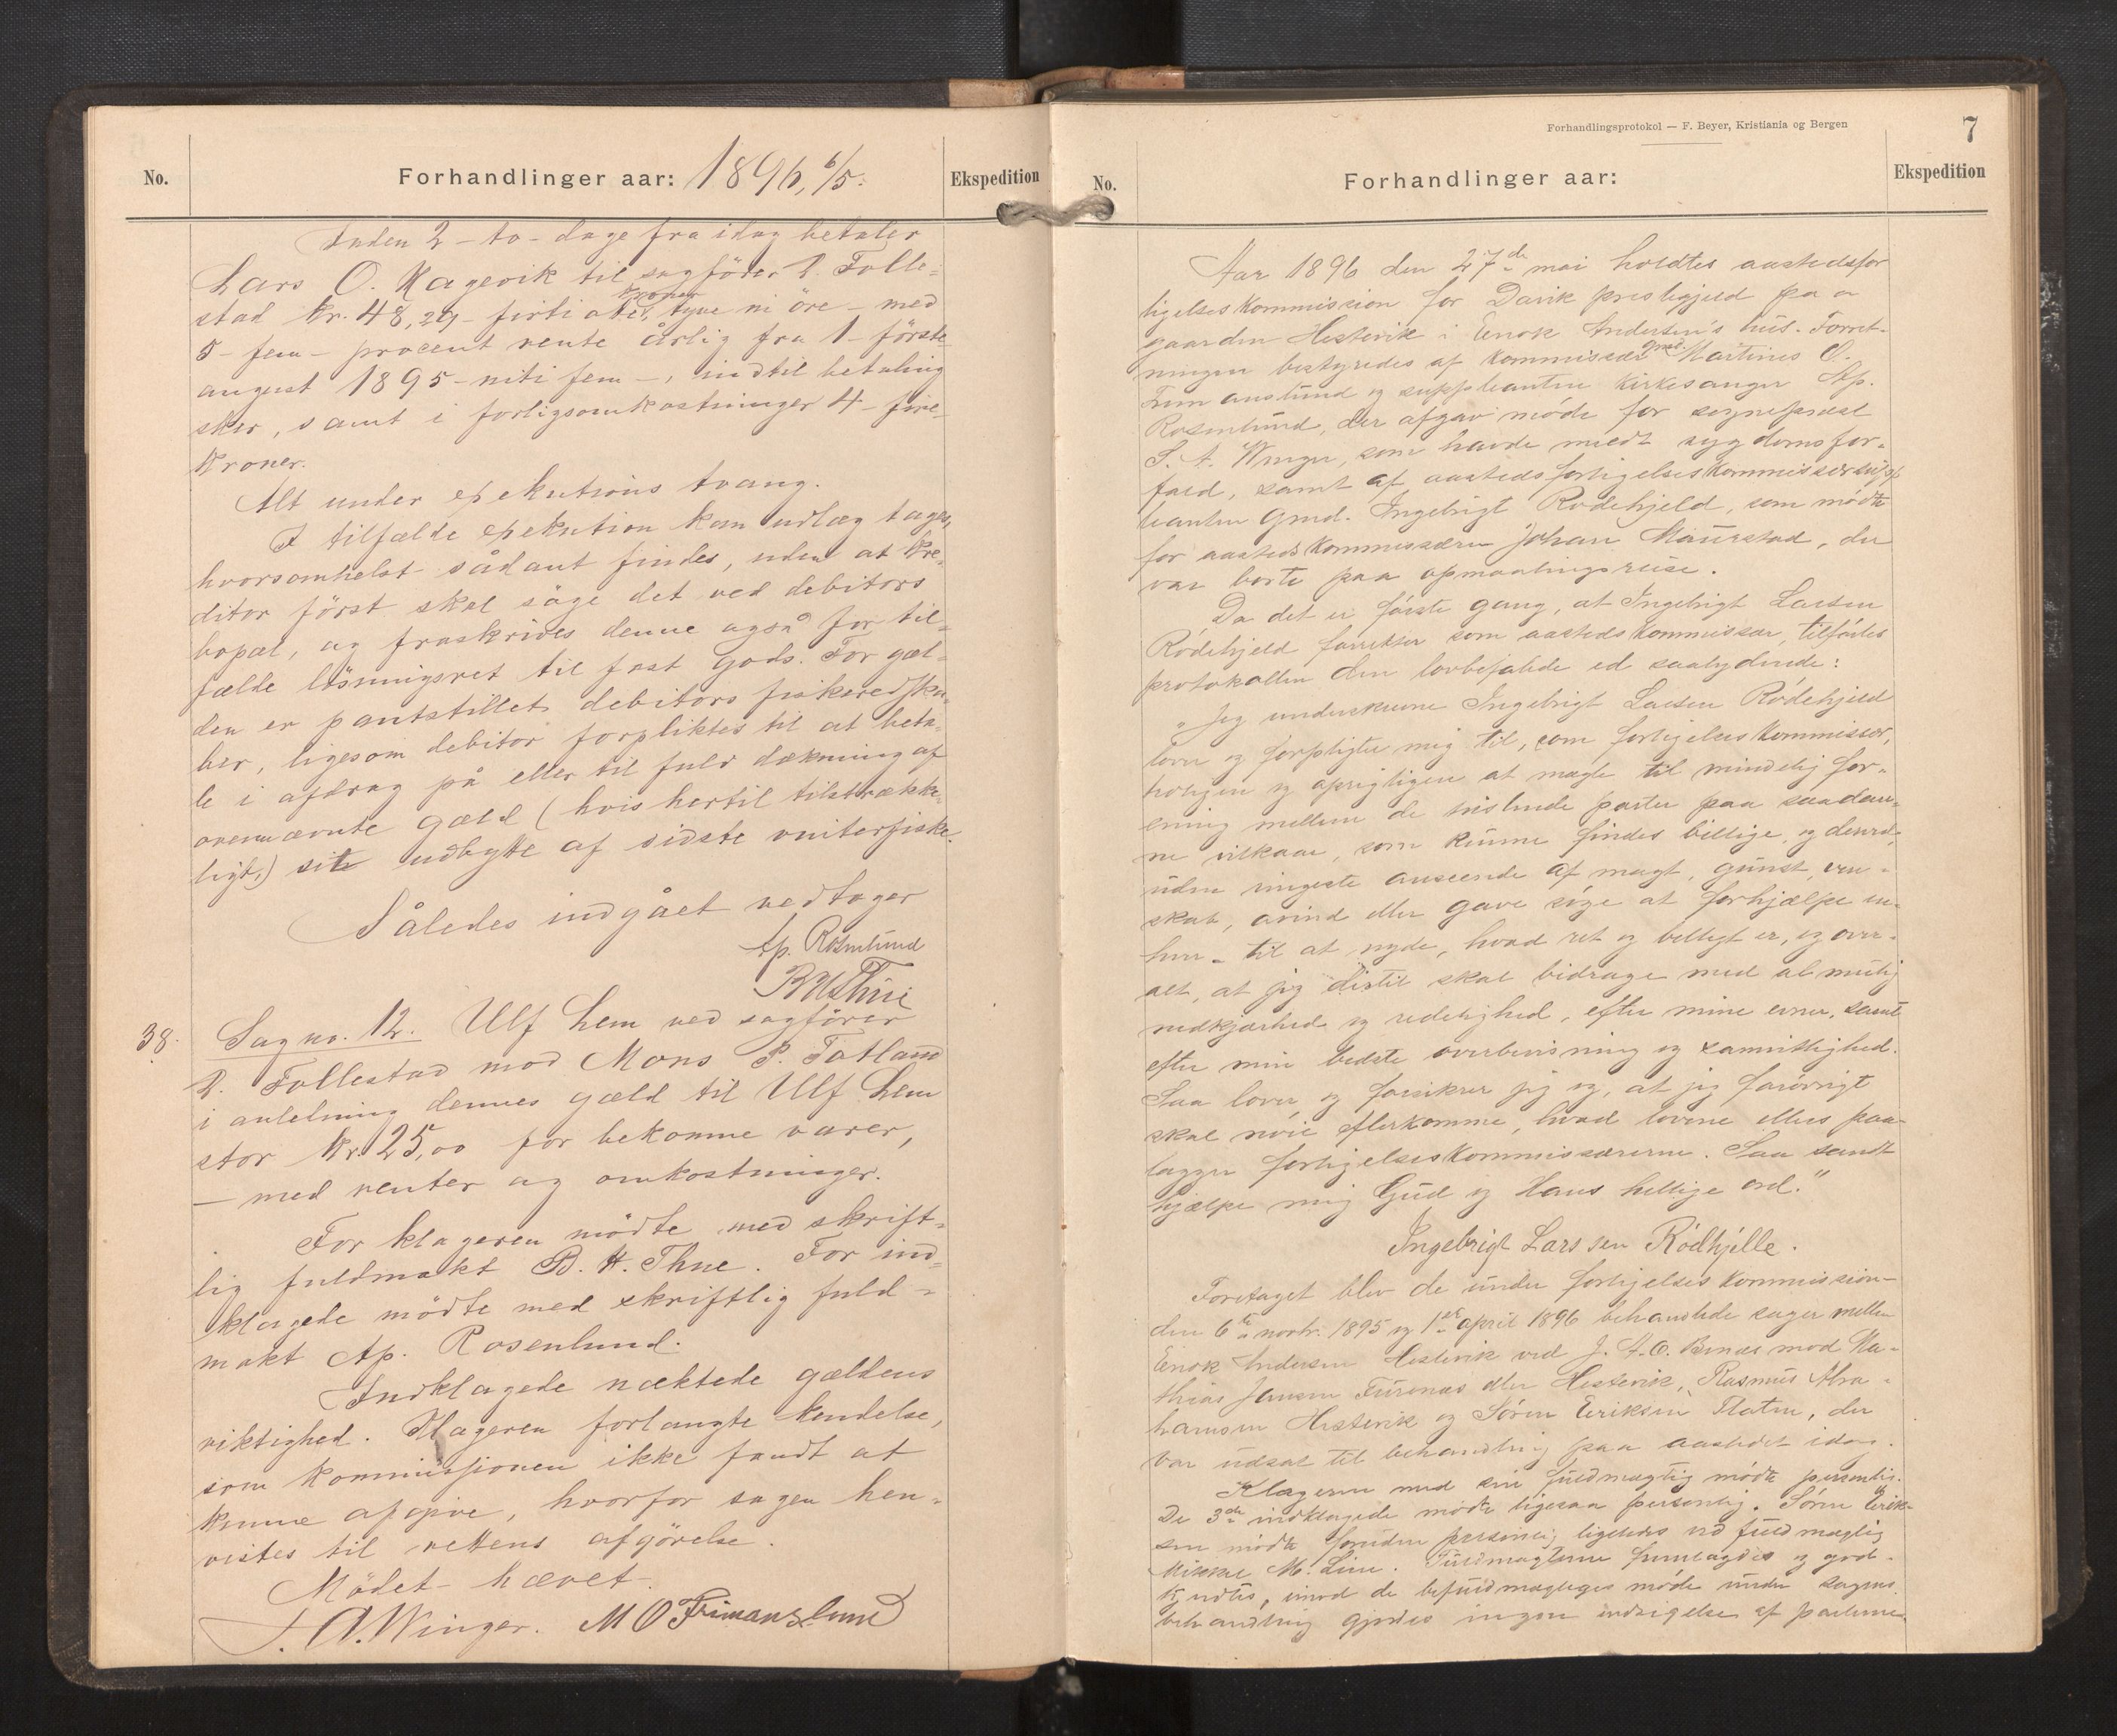 No.
Forhandlinger aar: 1896, 6/5.
Ekspedition
Inden 2 - to - dage fra idag betaler
Lars O. Hagevik til sagförer P. Folle=
stad kr. 48,29 - firti otte kroner, tyve ni öre - med
5 - fem - procent rente årlig fra 1 - förste
august 1895 - niti fem -, indtil betaling
sker, samt i forligsomkostninger 4 - fire
kroner.
Alt under exekutions tvang.
I tilfælde exekution kan udlæg tages,
hvorsomhelst sådant findes, uden at kre-
ditor först skal söge det ved debitors
bopæl, og fraskrives denne også for til-
fælde lösningsret til fast gods. For gæl-
den er pantstillet debitors fiskeredska-
ber, ligesom debitor forpliktes til at beta-
le i afdrag på eller til fuld dækning af
ovennævnte gæld (hvis hertil tilstrække-
ligt,) sit udbytte af sidste vinterfiske.
Således indgået vedtager
Ap. Rosenlund
B H Thue
38.
Sag no. 12. Ulf Lem ved sagförer
P. Follestad mod Mons P. Totland
i anledning dennes gæld til Ulf Lem
stor kr. 25,00 for bekomne varer,
- med renter og omkostninger.
For klageren mödte med skrift-
lig fuldmakt B. H. Thue. For ind-
klagede mödte med skriftlig fuld-
makt Ap. Rosenlund.
Indklagede næktede gældens
riktighed. Klageren forlangte kendelse,
som kommissjonen ikke fandt at
kunne afgive, hvorfor sagen hen-
vistes til rettens afgörelse.
Mödet hævet.
S. A. Winger. M O Frimanslund
Forhandlingsprotokol — F. Beyer, Kristiania og Bergen
7
No.
Forhandlinger aar:
Ekspedition
Aar 1896 den 27de mai holdtes aastedsfor
ligelseskommission for Davik prestegjeld paa
gaarden Hestevik i Enok Andersen's hus. Forret-
ningen bestyredes af kommissær gmd. Martinus O.
Frimanslund og suppleanten kirkesanger Ap.
Rosenlund, der afgav møde for sogneprest
S. A. Winger, som havde meldt sygdomsfor-
fald, samt af aastedsforligelseskommissærsupp-
leanten Gmd. Ingebrigt Rødehjeld, som mødte
for aastedskommissæren Johan Maurstad, der
var borte paa opmaalingsreise.
Da det er første gang, at Ingebrigt Larsen
Rødehjeld forretter som aastedskommissær, tilførtes
protokollen den lovbefalede ed saalydende:
"Jeg underskrevne Ingebrigt Larsen Rødehjeld
lover og forpligter mig til, som forligelseskommissær,
troligen og oprigtigen at mægle til mindelig for-
ening mellem de tvistende parter paa saadan-
ne vilkaar, som kunne findes billige, og derved,
uden ringeste anseende af magt, gunst, ven-
skab, avind eller gave søge at forhjælpe en-
hver til at nyde, hvad ret og billigt er, og over-
alt, at jeg dertil skal bidrage med al mulig
nidkjærhed og redelighed, efter mine evner, samt
efter min bedste overbevisning og samvittighed.
Saa lover og forsikrer jeg og, at jeg forøvrigt
skal nøie efterkomme, hvad lovene ellers paa-
lægger forligelseskommissærerne. Saa sandt
hjælpe mig Gud og Hans hellige ord."
Ingebrigt Larssen Rödhjelle.
Foretaget blev de under forligelseskommission-
den 6te novbr. 1895 og 1ste april 1896 behandlede sager mellem
Enok Andersen Hestevik ved J. A. O. mod Ma-
thias Jansen Furenes eller Hestevik, Rasmus Abra-
hamsen Hestevik og Søren Eriksen Flaten, der
var udsat til behandling paa aastedet idag.
Klageren med sin fuldmægtig mødte personlig.
De 3de indklagede mødte ligesaa personlig. Søren Erik-
sen mødte foruden personlig ligeledes ved fuldmægtig
Mikkel M. Fuldmagterne fremlagdes og god-
kjendtes, imod de befuldmægtiges møde under sagens
behandling gjordes ingen indsigelse af parterne.